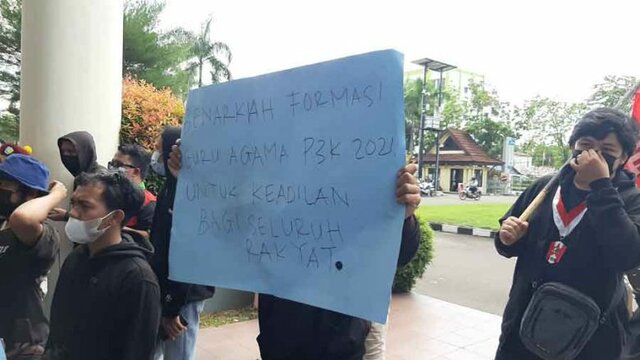 BENARKAH FORMASI
GURU AGAMA P3K 2021
UNTUK KEADILAN
BAGI SELURUH
RAKYAT.